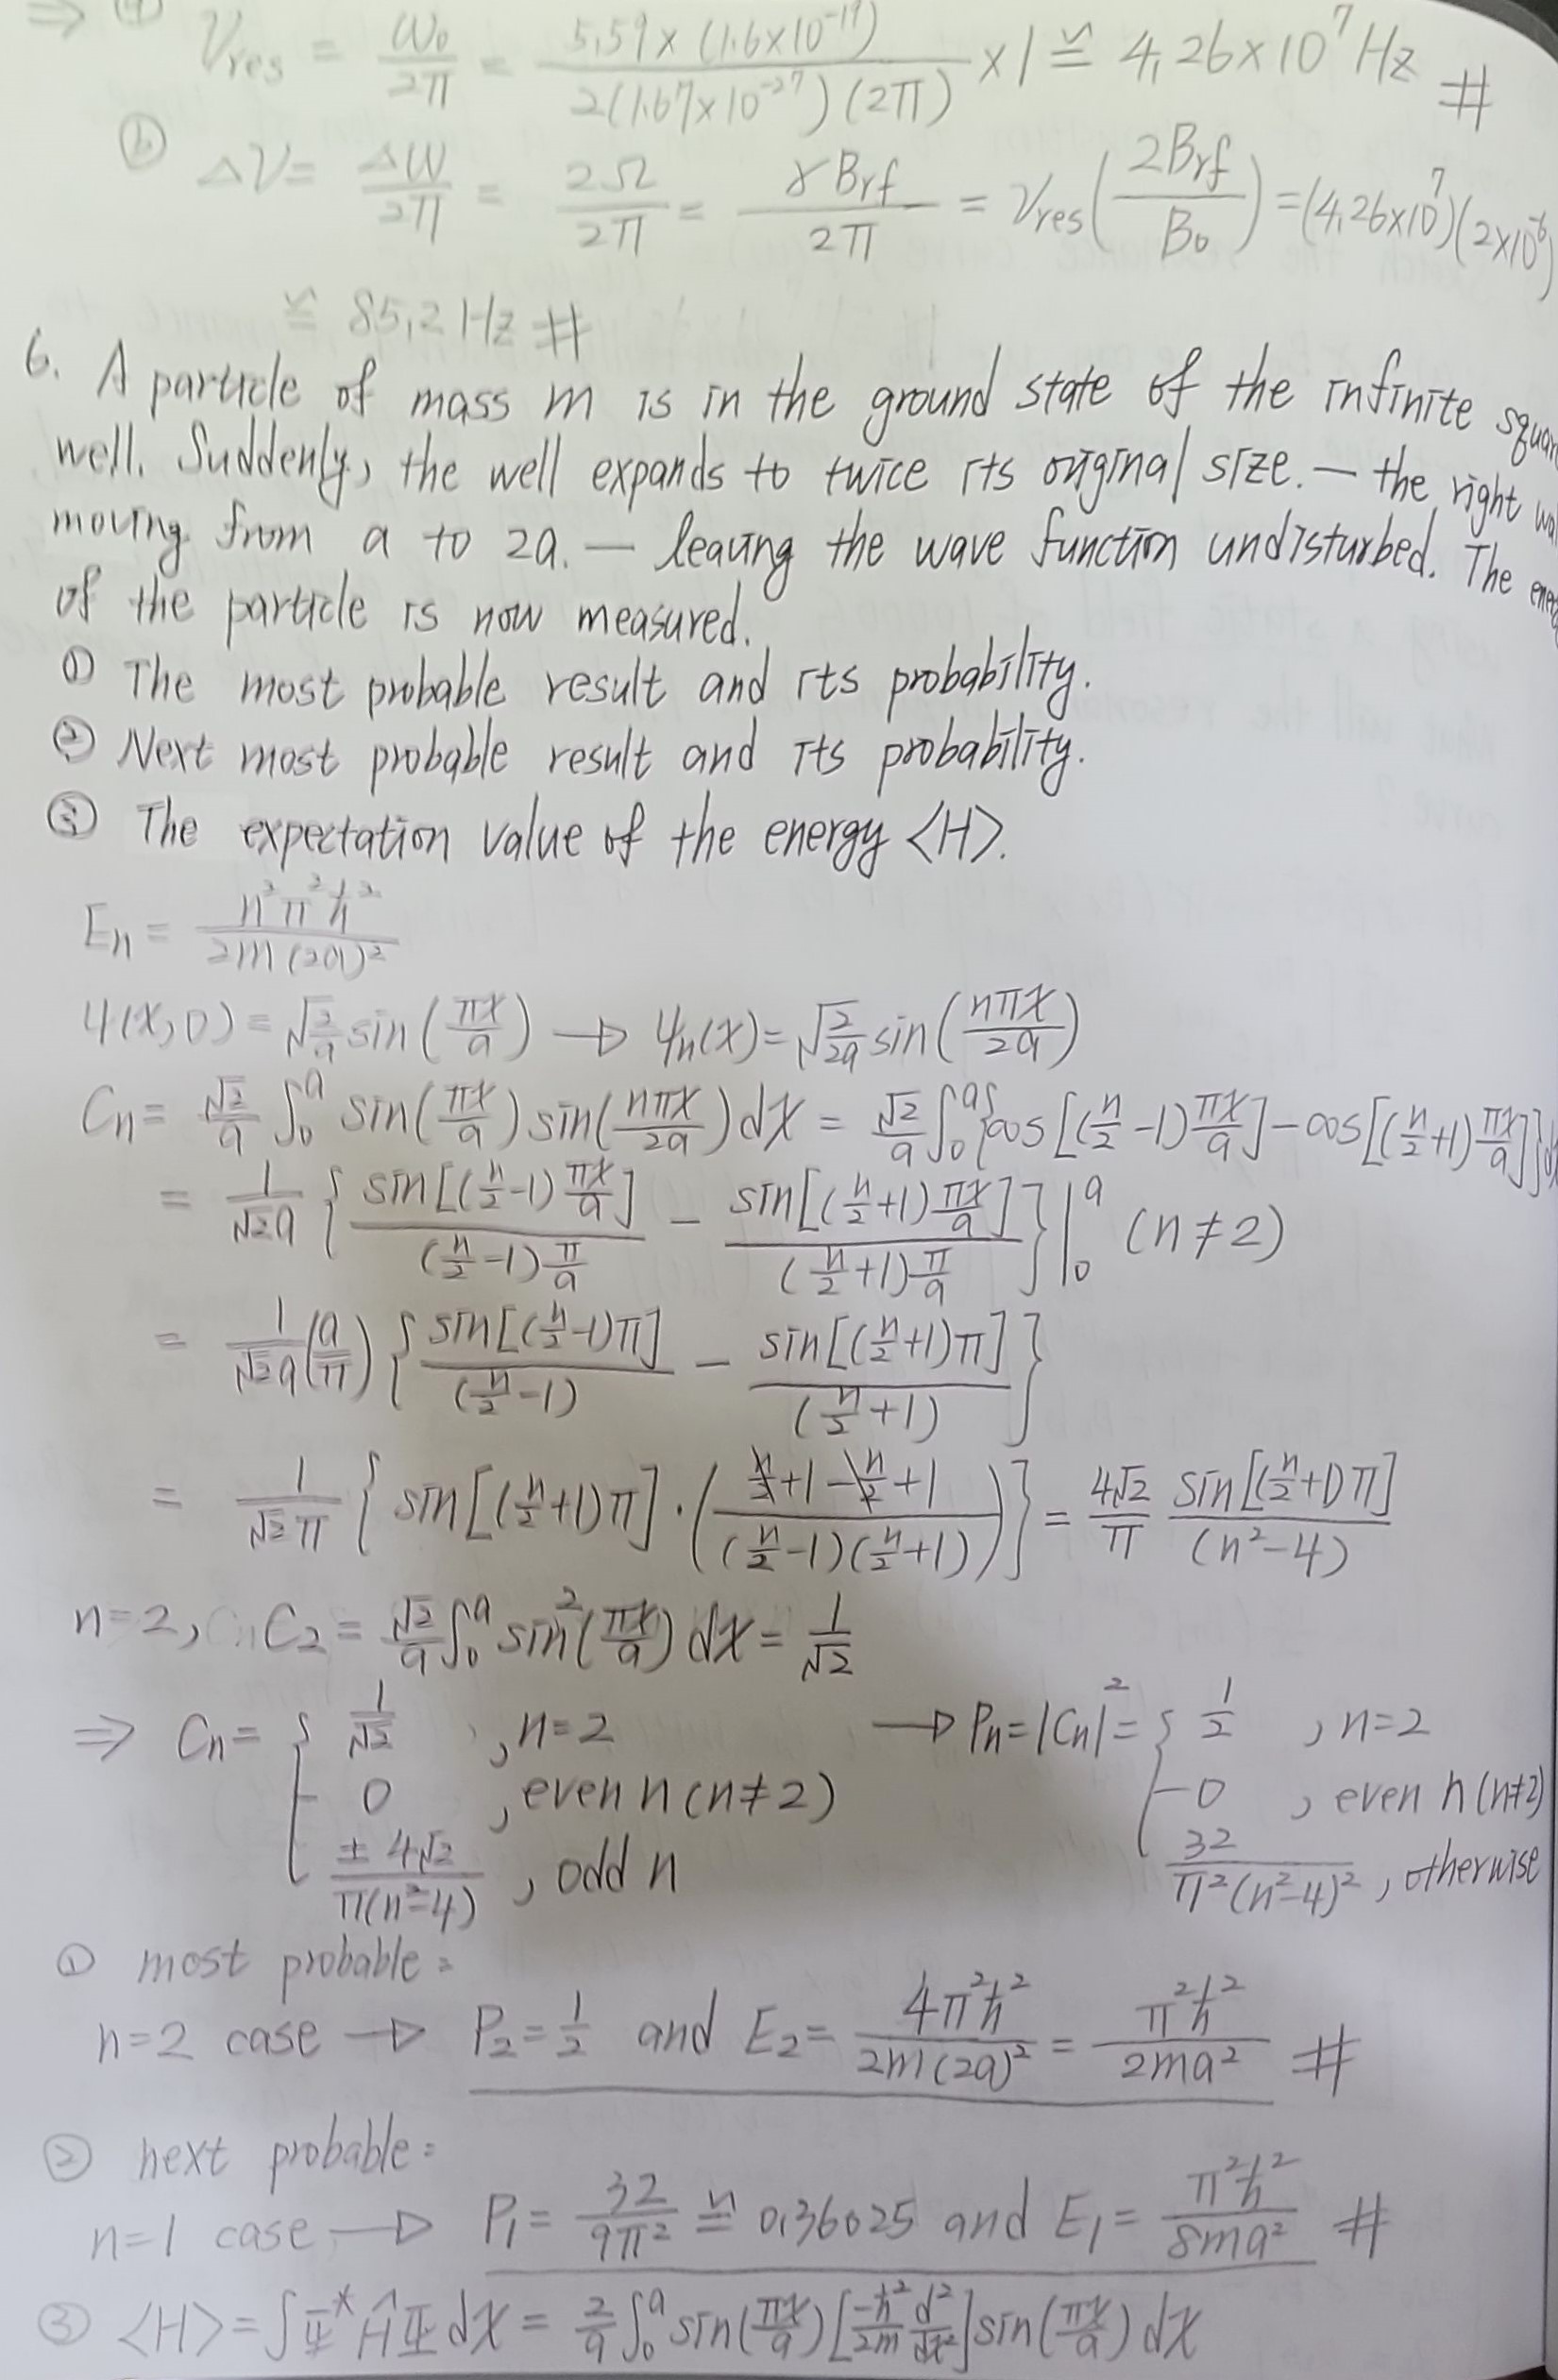 ⇒ ⓐ ν_res = ω₀/2π = 5.59×(1.6×10⁻¹⁹)/2(1.67×10⁻²⁷)(2π) ×1 ≌ 4.26×10⁷ Hz #
ⓑ Δν = Δω/2π = 2Ω/2π = γB_rf/2π = ν_res(2B_rf/B₀) = (4.26×10⁷)(2×10⁻⁶)
≌ 85.2 Hz #
6. A particle of mass m is in the ground state of the infinite squar
well. Suddenly, the well expands to twice its original size. — the right wa
moving from a to 2a. — leaving the wave function undisturbed. The ene
of the particle is now measured.
① The most probable result and its probability.
② Next most probable result and its probability.
③ The expectation value of the energy <H>.
Eₙ = n²π²ħ²/2m(2a)²
Ψ(x,0) = √(2/a) sin(πx/a) → Ψₙ(x) = √(2/2a) sin(nπx/2a)
Cₙ = √2/a ∫₀ᵃ sin(πx/a) sin(nπx/2a) dx = √2/a ∫₀ᵃ {cos[(n/2 -1)πx/a] - cos[(n/2 +1)πx/a]} dx
= 1/√2a {sin[(n/2 -1)πx/a]/(n/2 -1)π/a - sin[(n/2 +1)πx/a]/(n/2 +1)π/a}|₀ᵃ (n≠2)
= 1/√2a (a/π) {sin[(n/2 -1)π]/(n/2 -1) - sin[(n/2 +1)π]/(n/2 +1)}
= 1/√2π {sin[(n/2 +1)π]·(n/2 +1 - n/2 +1/(n/2 -1)(n/2 +1))} = 4√2/π sin[(n/2 +1)π]/(n²-4)
n=2, C₂ = √2/a ∫₀ᵃ sin²(πx/a) dx = 1/√2
⇒ Cₙ = { 1/√2 , n=2 → Pₙ = |Cₙ|² = { 1/2 , n=2
0 , even n (n≠2) 0 , even n (n≠2)
± 4√2/π(n²-4) , odd n 32/π²(n²-4)² , otherwise
① most probable:
n=2 case → P₂ = 1/2 and E₂ = 4π²ħ²/2m(2a)² = π²ħ²/2ma² #
② next probable:
n=1 case → P₁ = 32/9π² ≌ 0.36025 and E₁ = π²ħ²/8ma² #
③ <H> = ∫Ψ*ĤΨ dx = 2/a ∫₀ᵃ sin(πx/a) [-ħ²/2m d²/dx²] sin(πx/a) dx